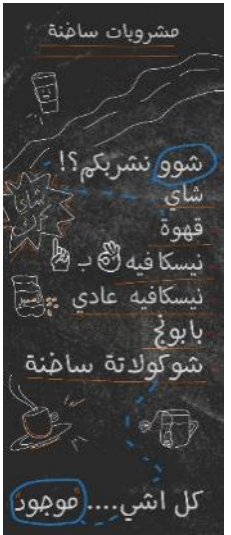 مشروبات ساخنة
شوو نشربكم؟!
شاي
قهوة
نيسكافيه 👌 ب ☝
نيسكافيه عادي
بابونج
شوكولاتة ساخنة
كل اشي.... موجود